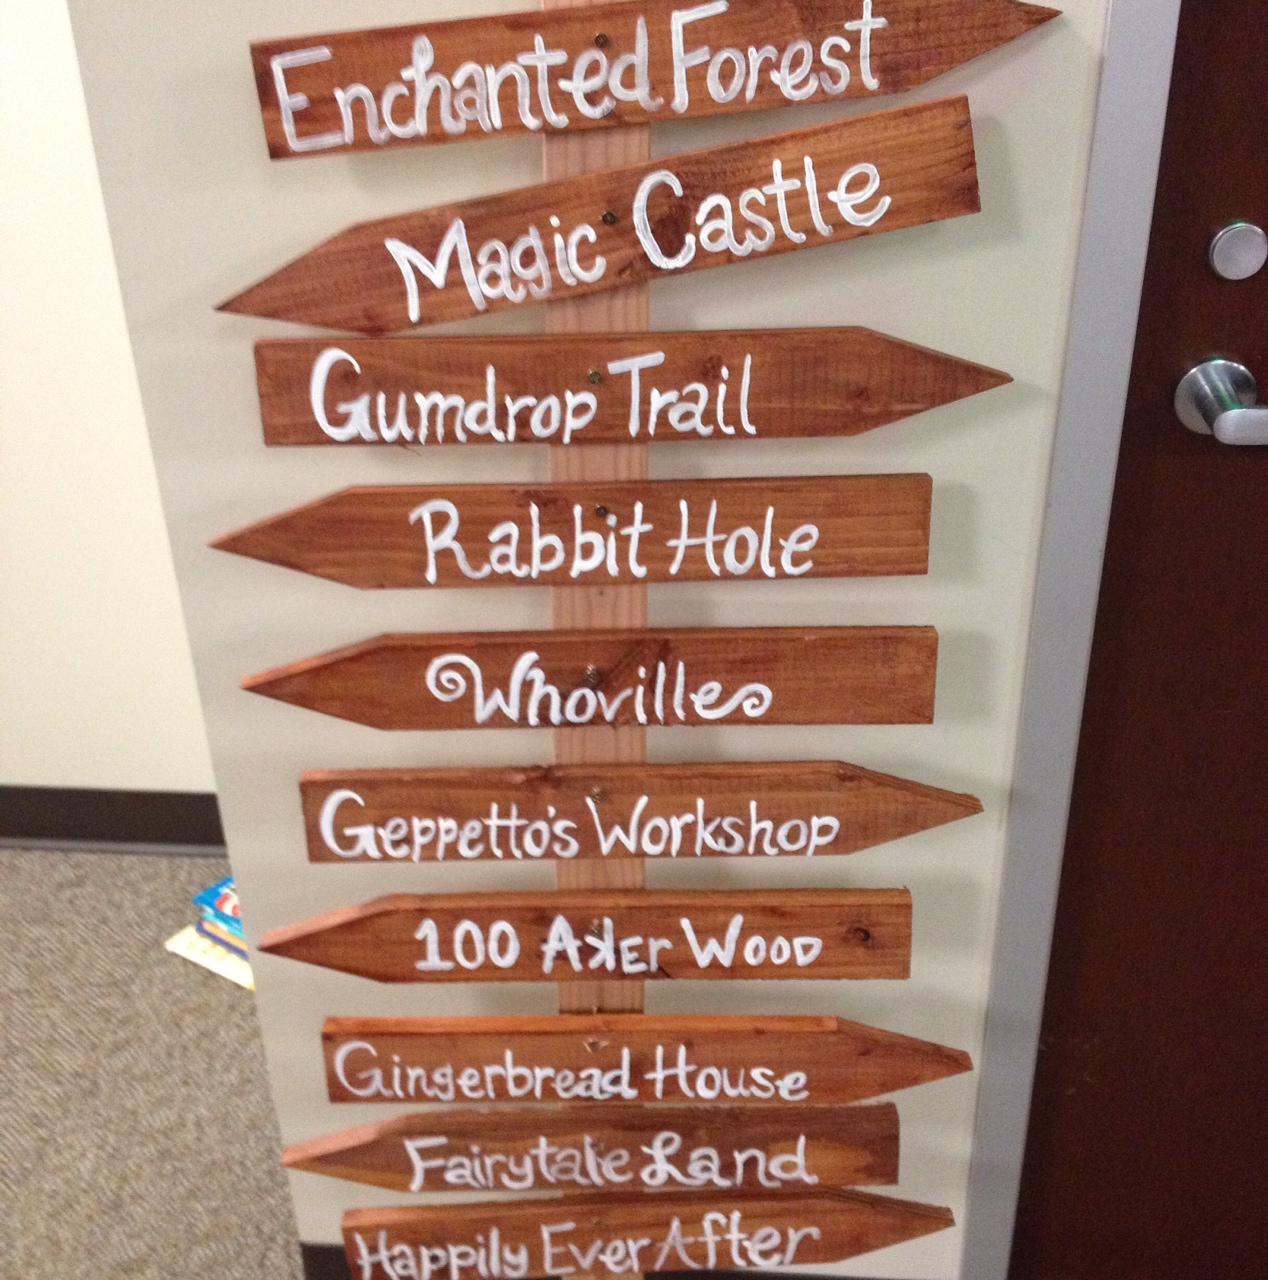 Enchanted Forest
Magic Castle
Gumdrop Trail
Rabbit Hole
Whoville
Geppetto's Workshop
100 AKEr WOOD
Gingerbread House
Fairytale Land
Happily Ever After